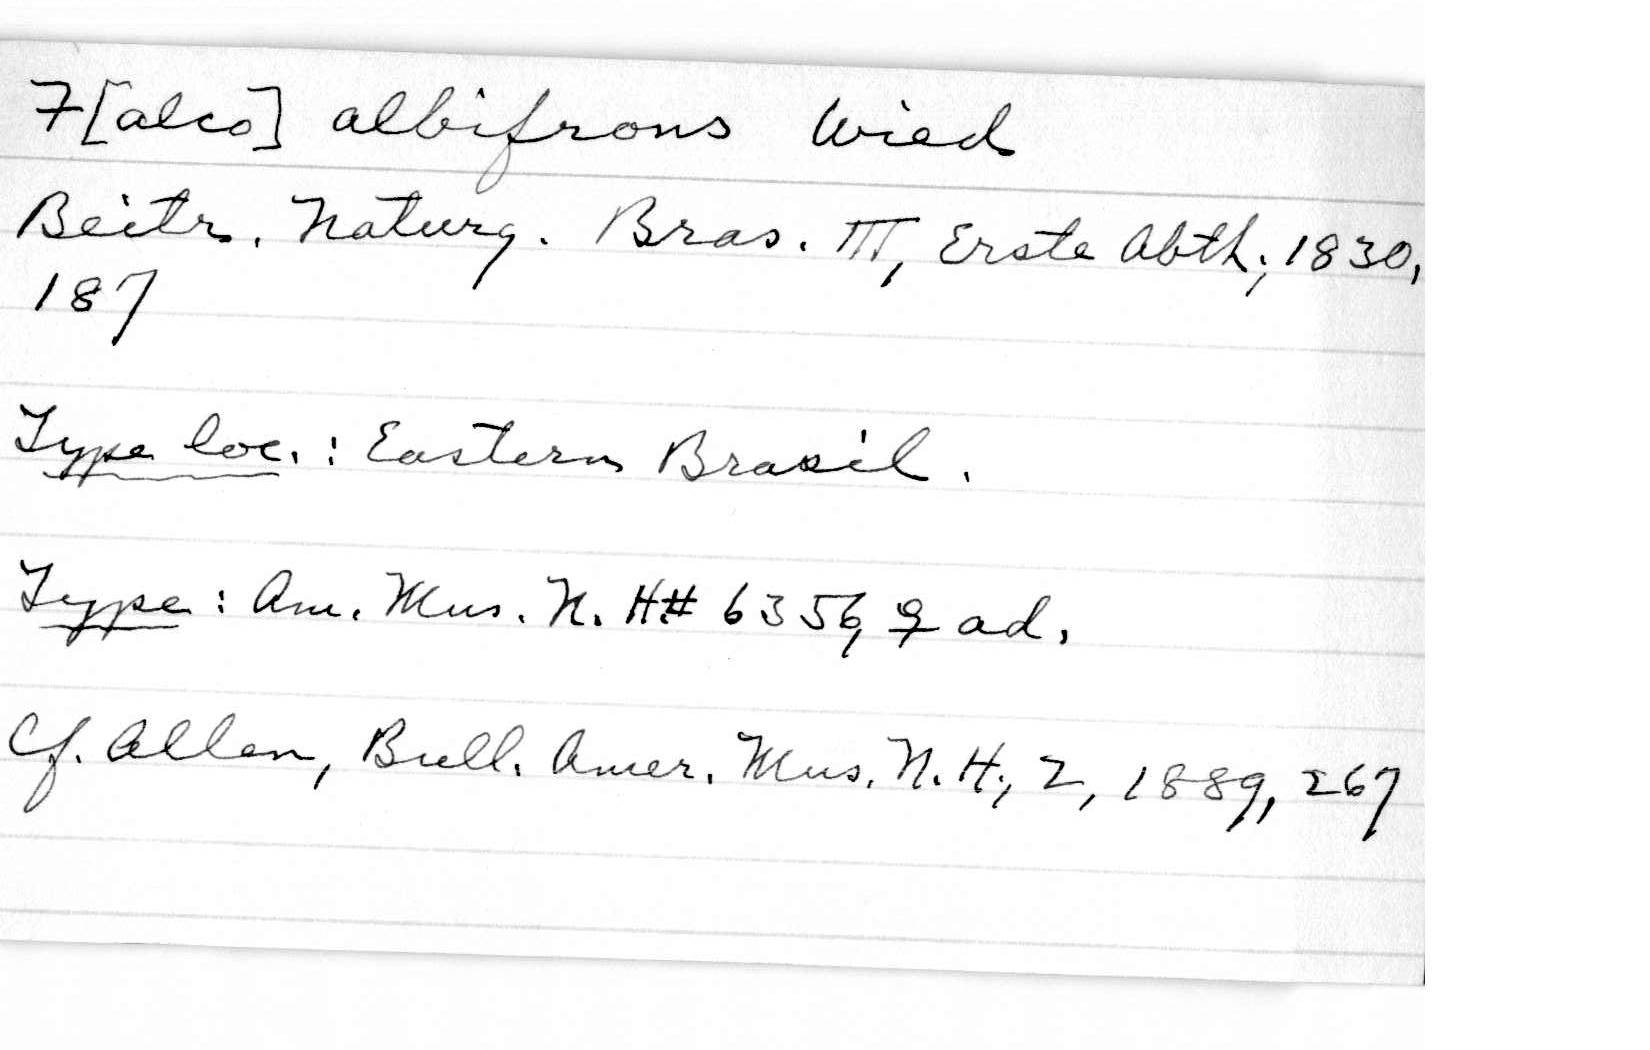 F[alco] albifrons Wied
Beitr. Naturg. Bras. III, Erste Abth., 1830,
187
Type loc.: Eastern Brasil.
Type: Am. Mus. N. H.# 6356, ♀ ad.
Cf. Allen, Bull. Amer. Mus. N. H., 2, 1889, 267